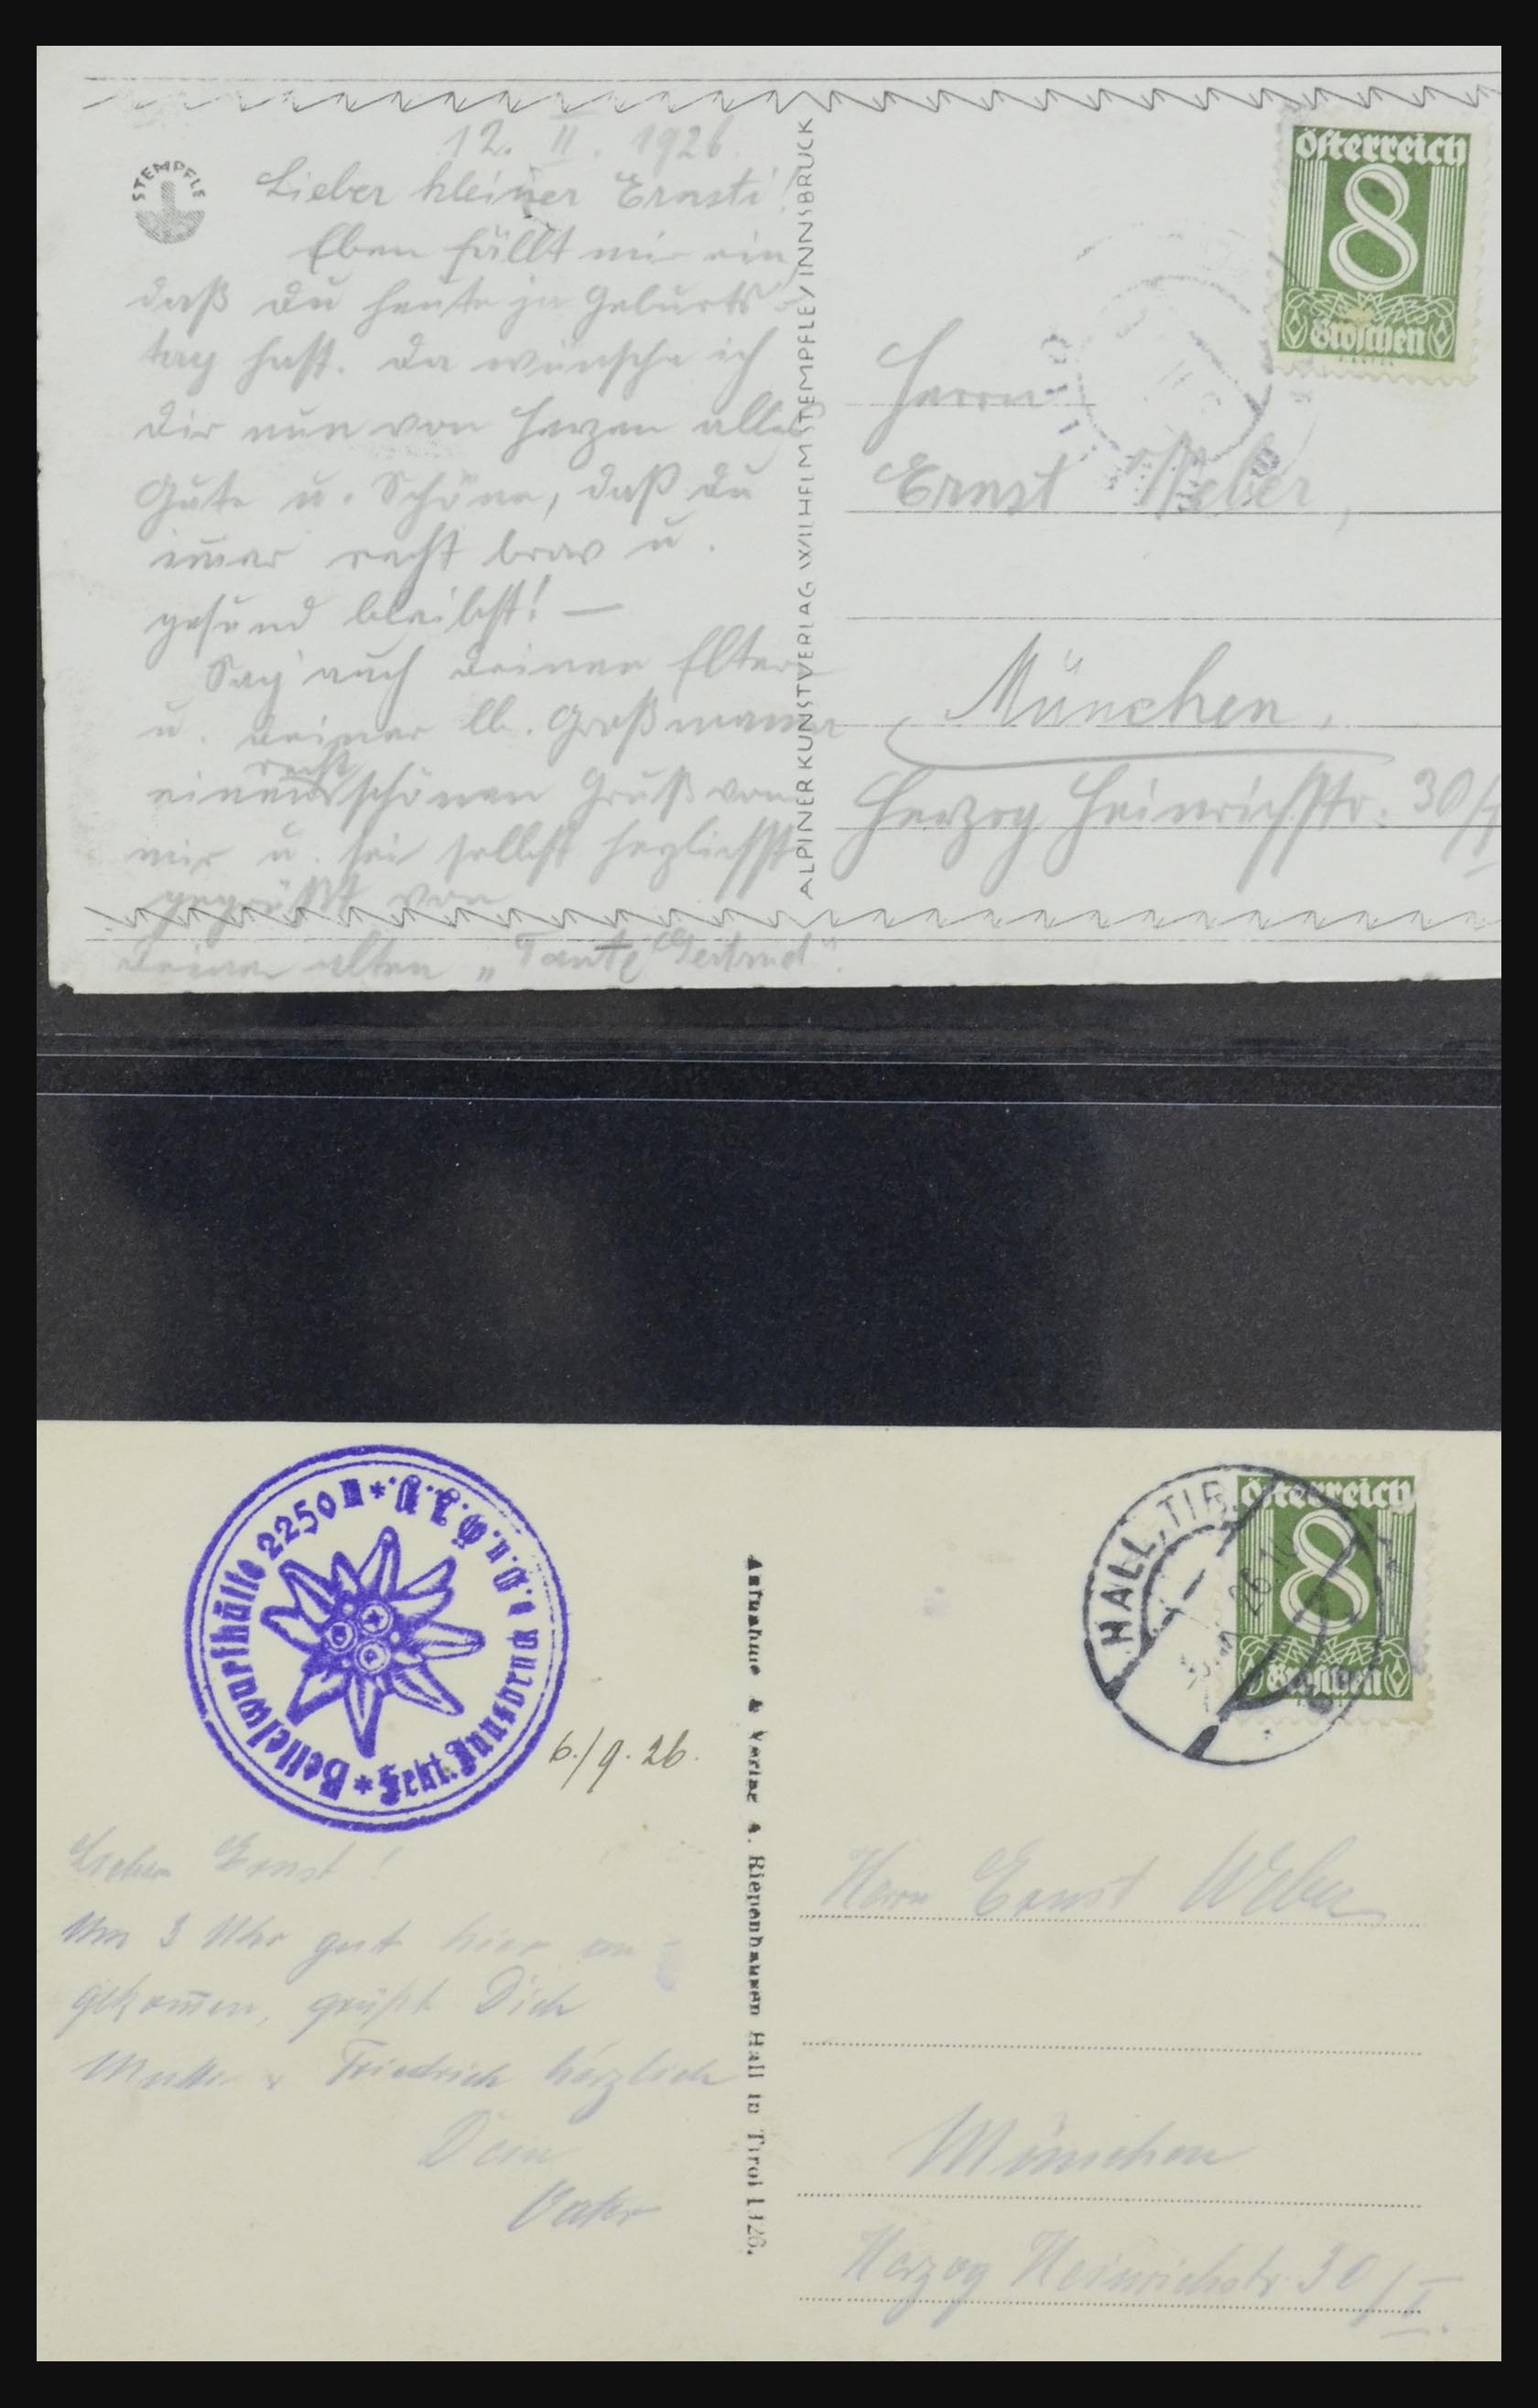 12. II. 1926.
STEMPFLE
Lieber kleiner Ernsti!
Eben fällt mir ein,
daß du heute ja Geburts-
tag hast. Da wünsche ich
dir nun von Herzen alles
Gute u. Schöne, daß du
im̅er recht brav u.
gesund bleibst! —
Sag' auch deinen Eltern
u. deiner lb. Großmama
recht
einen schönen Gruß von
mir u. sei selbst herzlichst
gegrüßt von
deiner alten „Tante Gertrud".
ALPINER KUNSTVERLAG WILHELM STEMPFLE / INNSBRUCK
Österreich
8
Groschen
Herrn
Ernst Weber,
München.
Herzog Heinrichstr. 30/I
Bettelwurfhütte 2250 M * D.u.Ö.A.V. * Sekt. Innsbruck
6./9. 26.
Lieber Ernst!
Um 3 Uhr gut hier an-
gekom̅en, grüßt Dich
Mutter u. Friedrich herzlich
Dein
Vater
Aufnahme & Verlag A. Riepenhausen Hall in Tirol 1926.
HALL, TIR.
Österreich
8
Groschen
Herrn Ernst Weber
München
Herzog Heinrichstr 30/I.